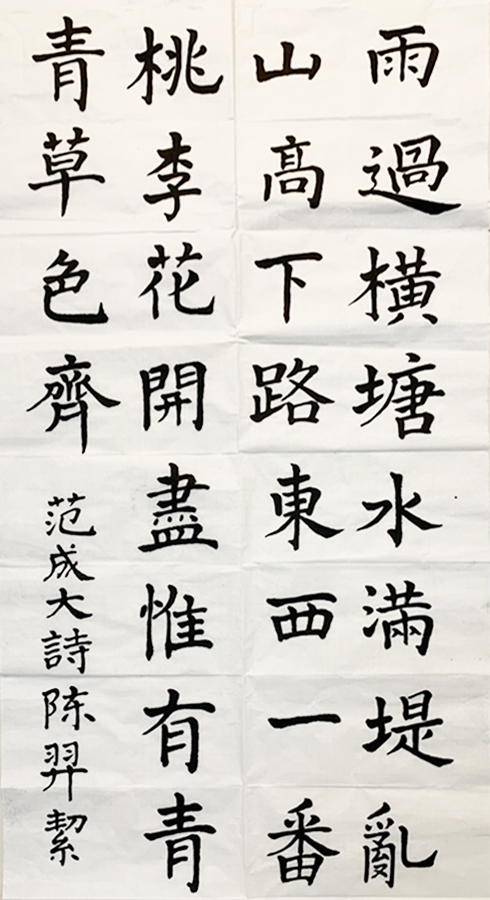 雨過橫塘水滿堤亂
山髙下路東西一番
桃李花開盡惟有青
青草色齊
范成大詩陈羿絜